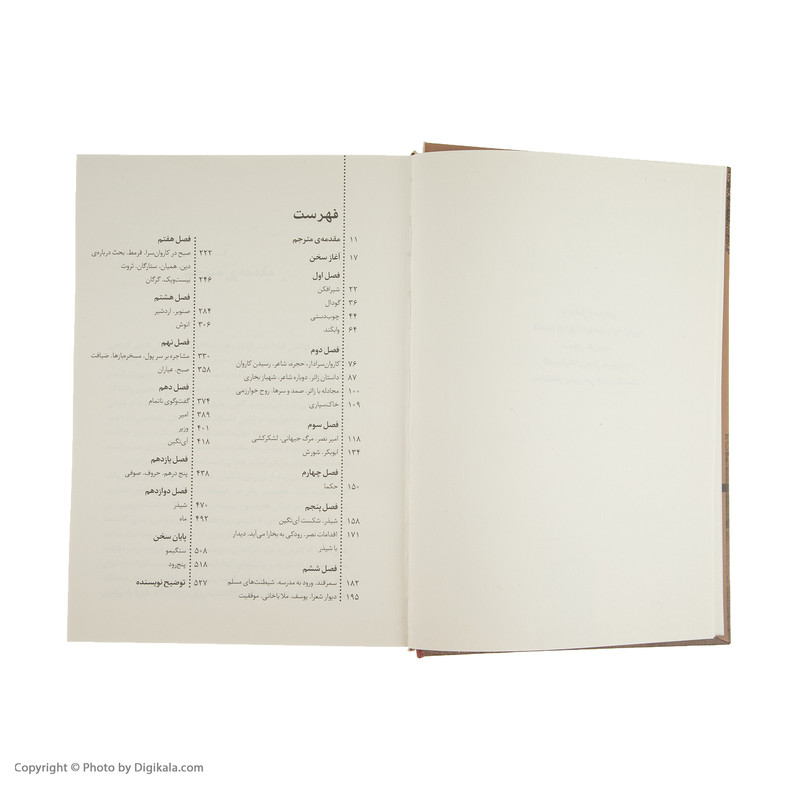 فهرست
۱۱ مقدمه‌ی مترجم
۱۷ آغاز سخن
فصل اول
۲۲ شیرافکن
۳۶ گودال
۴۴ چوب‌دستی
۶۴ وابکند
فصل دوم
۷۶ کاروان‌سرادار، حجره، شاعر، رسیدن کاروان
۸۷ داستان زائر، دوباره شاعر، شهباز بخاری
۱۰۰ مجادله با زائر، صمد و سرها، روح خوارزمی
۱۰۹ خاک‌سپاری
فصل سوم
۱۱۸ امیر نصر، مرگ جیهانی، لشکرکشی
۱۳۴ ابوبکر، شورش
فصل چهارم
۱۵۰ حکما
فصل پنجم
۱۵۸ شیذر، شکست آی‌تگین
۱۷۱ اقدامات نصر، رودکی به بخارا می‌آید، دیدار
با شیذر
فصل ششم
۱۸۲ سمرقند، ورود به مدرسه، شیطنت‌های مسلم
۱۹۵ دیوار شعرا، یوسف، ملا باخانی، موفقیت
فصل هفتم
۲۲۲ صبح در کاروان‌سرا، قرمط، بحث درباره‌ی
دین، همیان، ستارگان، ثروت
۲۴۶ بیست‌ویک، گرگان
فصل هشتم
۲۸۴ صنوبر، اردشیر
۳۰۶ انوش
فصل نهم
۳۳۰ مشاجره بر سر پول، مسخره‌بازها، ضیافت
۳۵۸ صبح، عیاران
فصل دهم
۳۷۴ گفت‌وگوی ناتمام
۳۸۹ امیر
۴۰۱ وزیر
۴۱۸ آی‌تگین
فصل یازدهم
۴۳۸ پنج درهم، حروف، صوفی
فصل دوازدهم
۴۷۰ شیذر
۴۹۲ ماه
پایان سخن
۵۰۸ سنگیمو
۵۱۸ پنج‌رود
۵۲۷ توضیح نویسنده
Copyright © Photo by Digikala.com